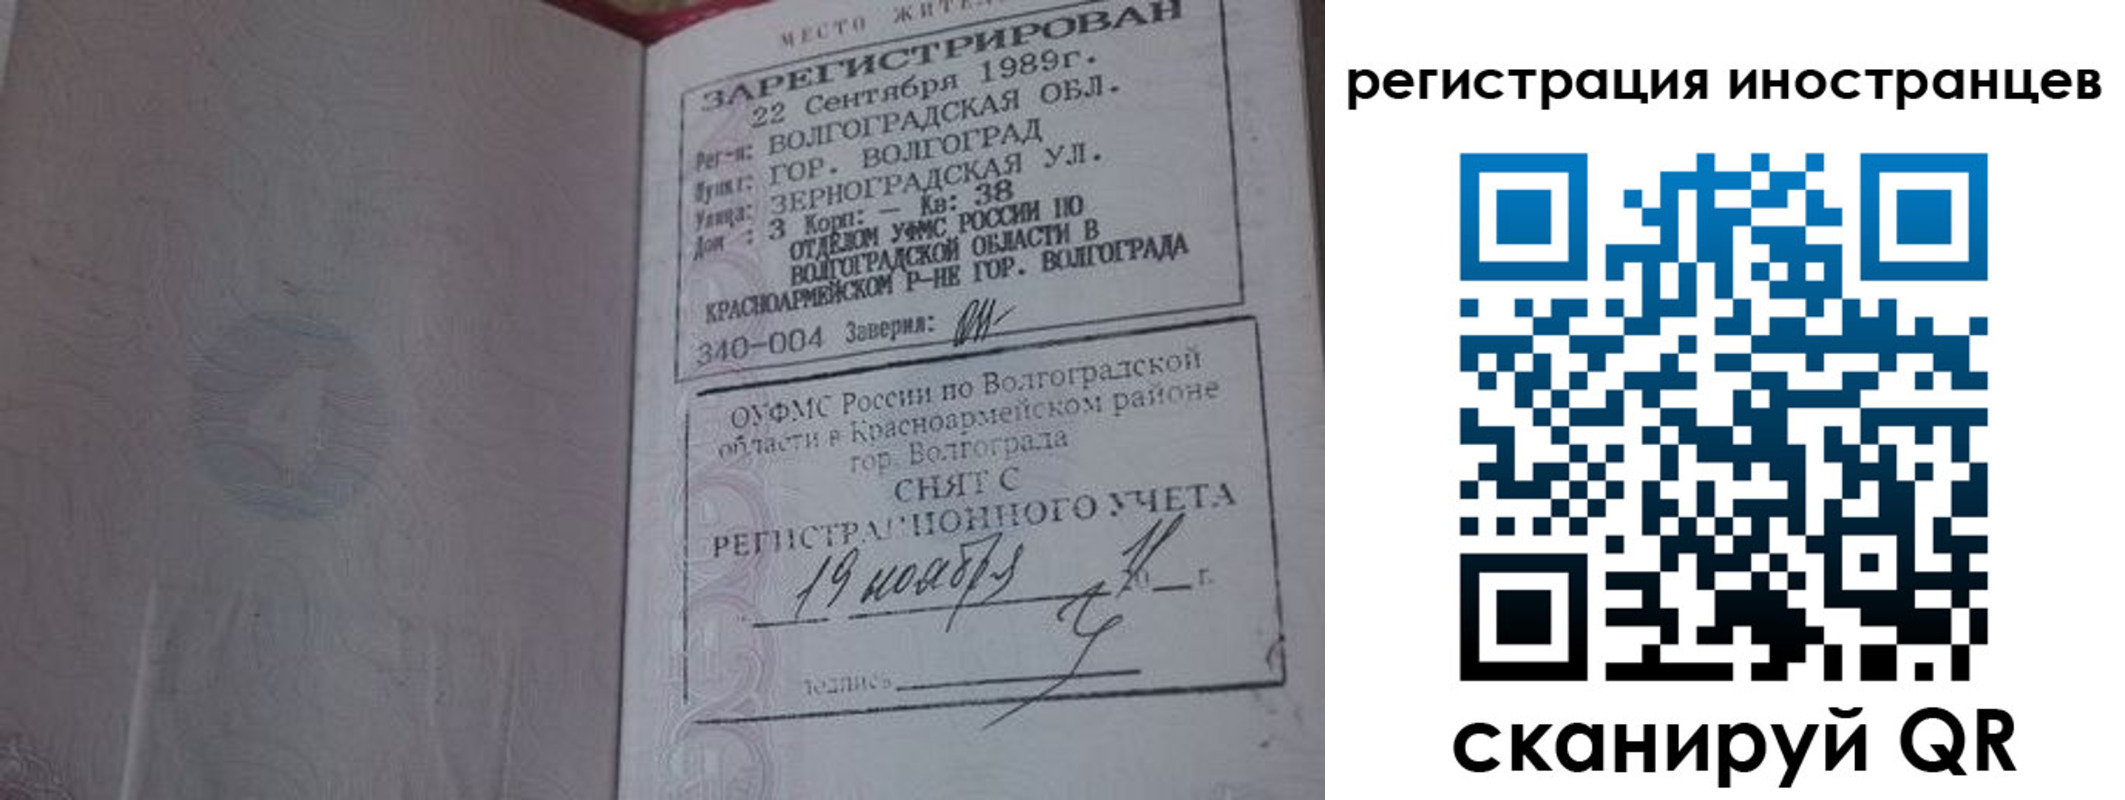 МЕСТО
ЗАРЕГИСТРИРОВАН
22 Сентября 1989г.
Рег-н: ВОЛГОГРАДСКАЯ ОБЛ.
Пункт: ГОР. ВОЛГОГРАД
Улица: ЗЕРНОГРАДСКАЯ УЛ.
Дом : 3 Корп: — Кв: 38
ОТДЕЛОМ УФМС РОССИИ ПО
ВОЛГОГРАДСКОЙ ОБЛАСТИ В
КРАСНОАРМЕЙСКОМ Р-НЕ ГОР. ВОЛГОГРАДА
340-004 Заверил:
ОУФМС России по Волгоградской
области в Красноармейском районе
гор. Волгограда
СНЯТ С
РЕГИСТРАЦИОННОГО УЧЕТА
19 ноября 20 г.
подпись
регистрация иностранцев
сканируй QR